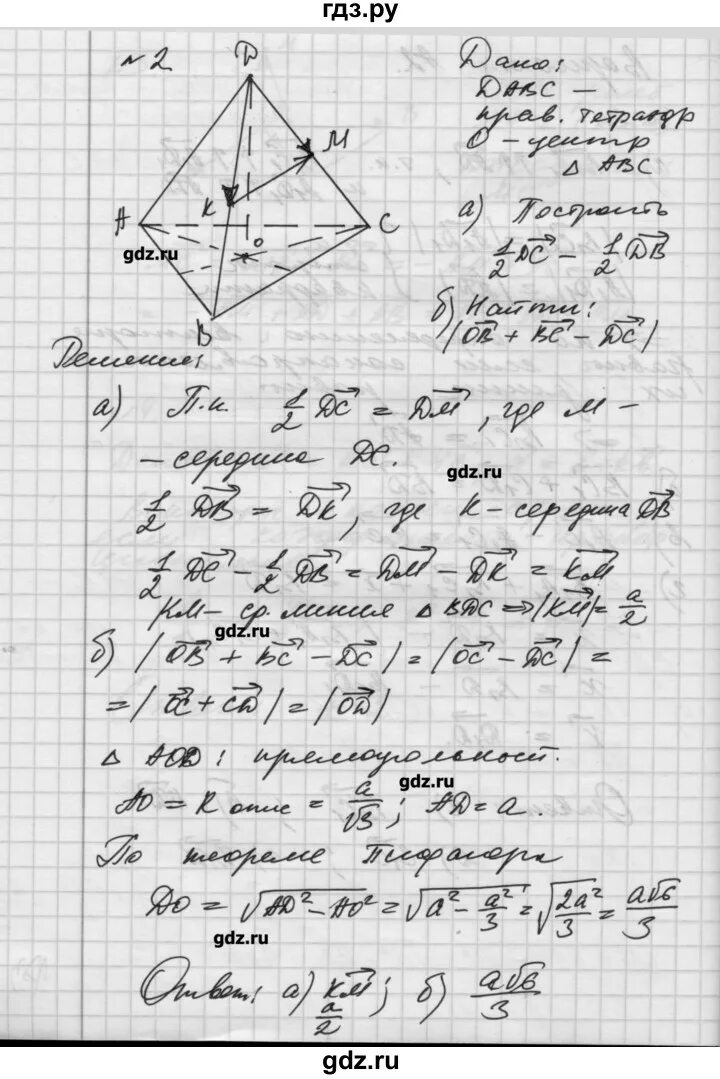 гдз.ру
№2
D
M
A
K
C
O
B
gdz.ru
Дано:
DABC —
прав. тетраэдр
O - центр
△ ABC
а) Построить
1/2 DC→ - 1/2 DB→
б) Найти:
|OB→ + BC→ - DC→|
Решение:
а) Т.к. 1/2 DC→ = DM→, где M -
- середина DC.
gdz.ru
1/2 DB→ = DK→, где K - середина DB→
1/2 DC→ - 1/2 DB→ = DM→ - DK→ = KM→
KM - ср. линия △ BDC ⇒ |KM→| = a/2
gdz.ru
б) |OB→ + BC→ - DC→| = |OC→ - DC→| =
= |OC→ + CD→| = |OD→|
△ AOD: прямоугольный.
gdz.ru
AO = R опис = a/√3; AD = a.
По теореме Пифагора
DO = √(AD² - AO²) = √(a² - a²/3) = √(2a²/3) = a√6/3
gdz.ru
Ответ: а) KM→; б) a√6/3
a/2
gdz.ru